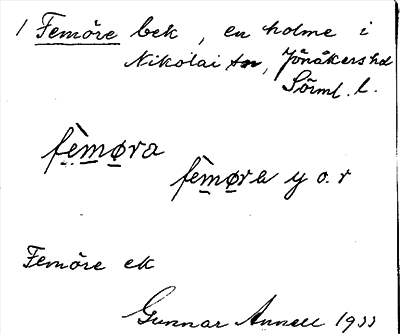 1 Femöre bek, en holme i
Nikolai sn, Jönåkers hd
Sörml. l.
fèmøra
fèmøra y o. r
Femöre ek
Gunnar Annell 1933